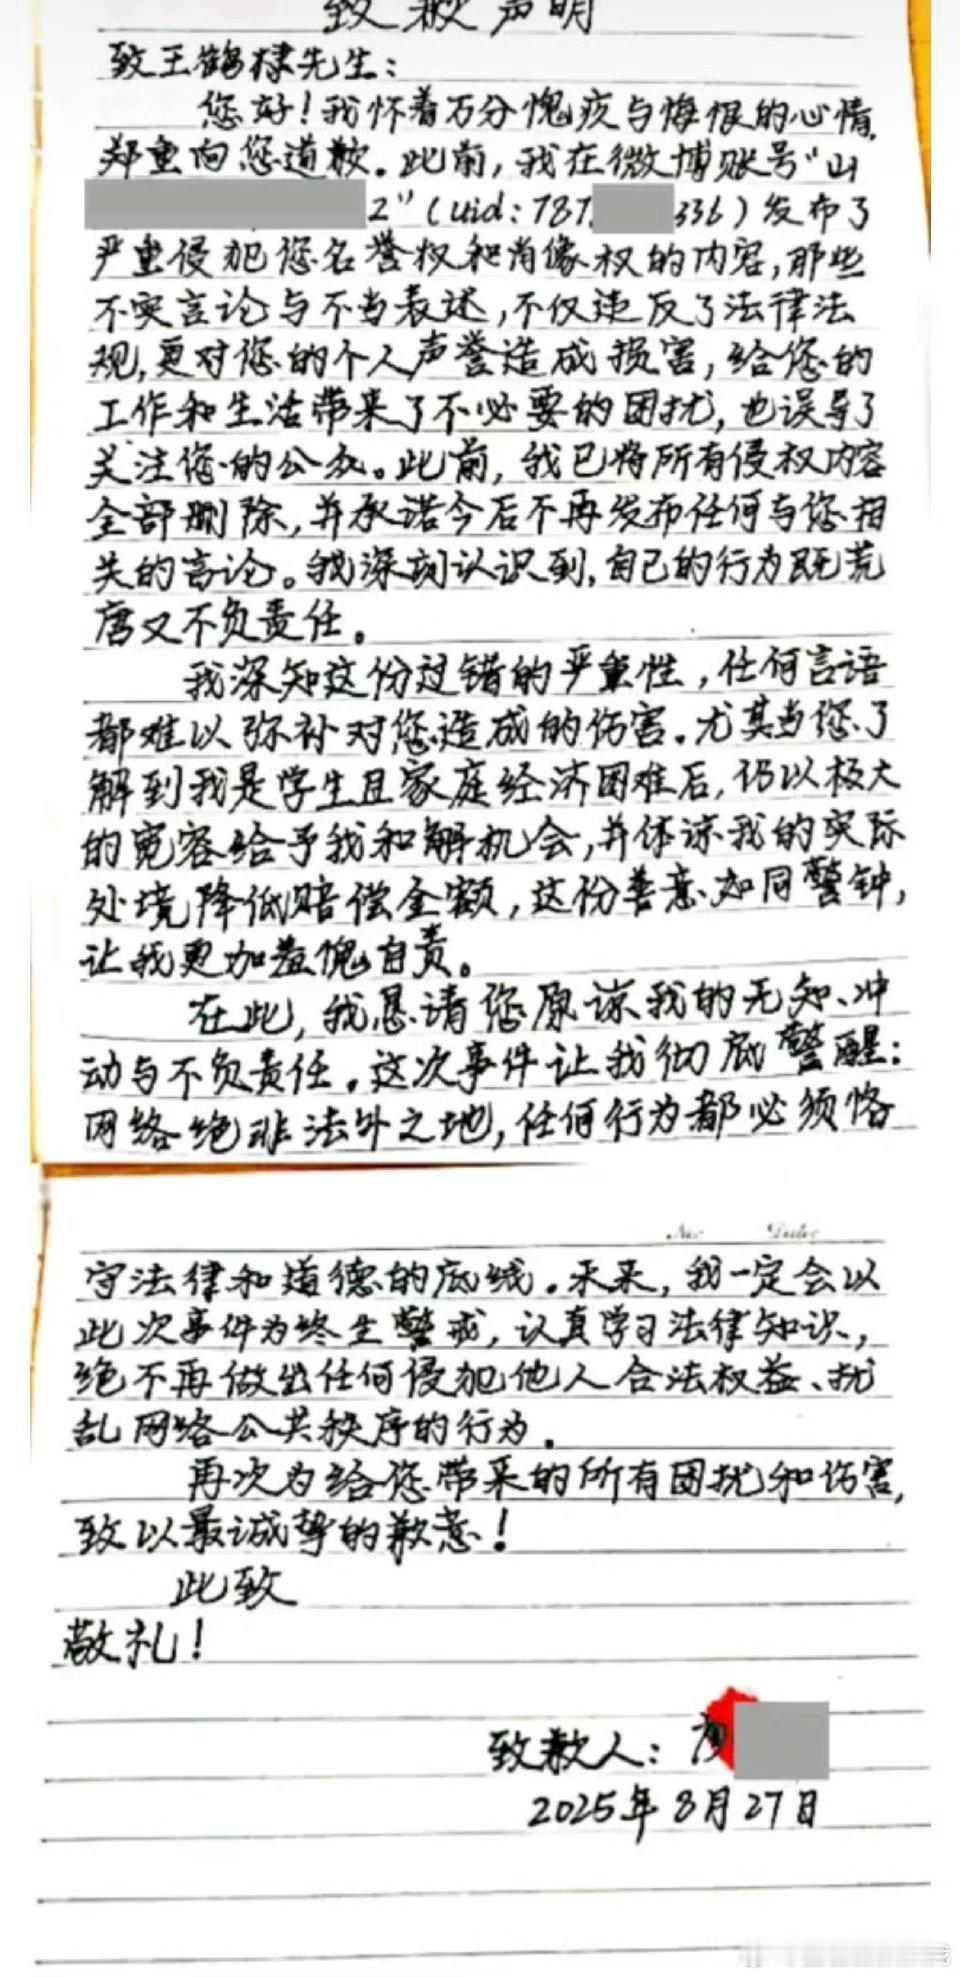 致歉声明
致王鹤棣先生：
您好！我怀着万分愧疚与悔恨的心情，
郑重向您道歉。此前，我在微博账号“山
2”（uid：787 336）发布了
严重侵犯您名誉权和肖像权的内容，那些
不实言论与不当表述，不仅违反了法律法
规，更对您的个人声誉造成损害，给您的
工作和生活带来了不必要的困扰，也误导了
关注您的公众。此前，我已将所有侵权内容
全部删除，并承诺今后不再发布任何与您相
关的言论。我深刻认识到，自己的行为既荒
唐又不负责任。
我深知这份过错的严重性，任何言语
都难以弥补对您造成的伤害。尤其当您了
解到我是学生且家庭经济困难后，仍以极大
的宽容给予我和解机会，并体谅我的实际
处境降低赔偿金额，这份善意如同警钟，
让我更加羞愧自责。
在此，我恳请您原谅我的无知、冲
动与不负责任。这次事件让我彻底警醒：
网络绝非法外之地，任何行为都必须恪
No Date
守法律和道德的底线。未来，我一定会以
此次事件为终生警戒，认真学习法律知识，
绝不再做出任何侵犯他人合法权益、扰
乱网络公共秩序的行为。
再次为给您带来的所有困扰和伤害，
致以最诚挚的歉意！
此致
敬礼！
致歉人：
2025年8月27日